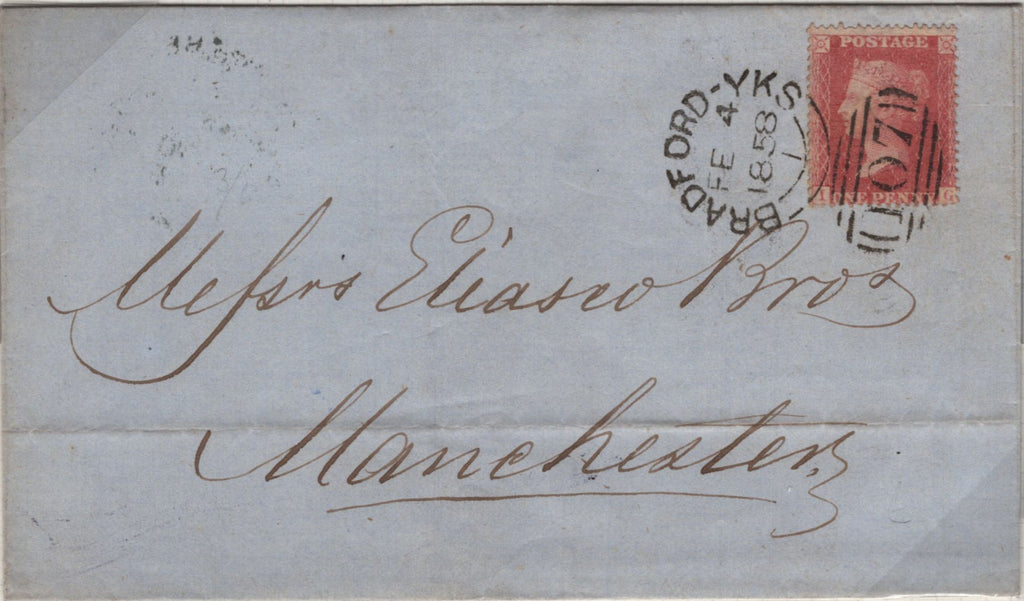 POSTAGE
ONE PENNY
BRADFORD-YKS
FE 4
1858
1
107
Messrs Eliasco Bros
Manchester